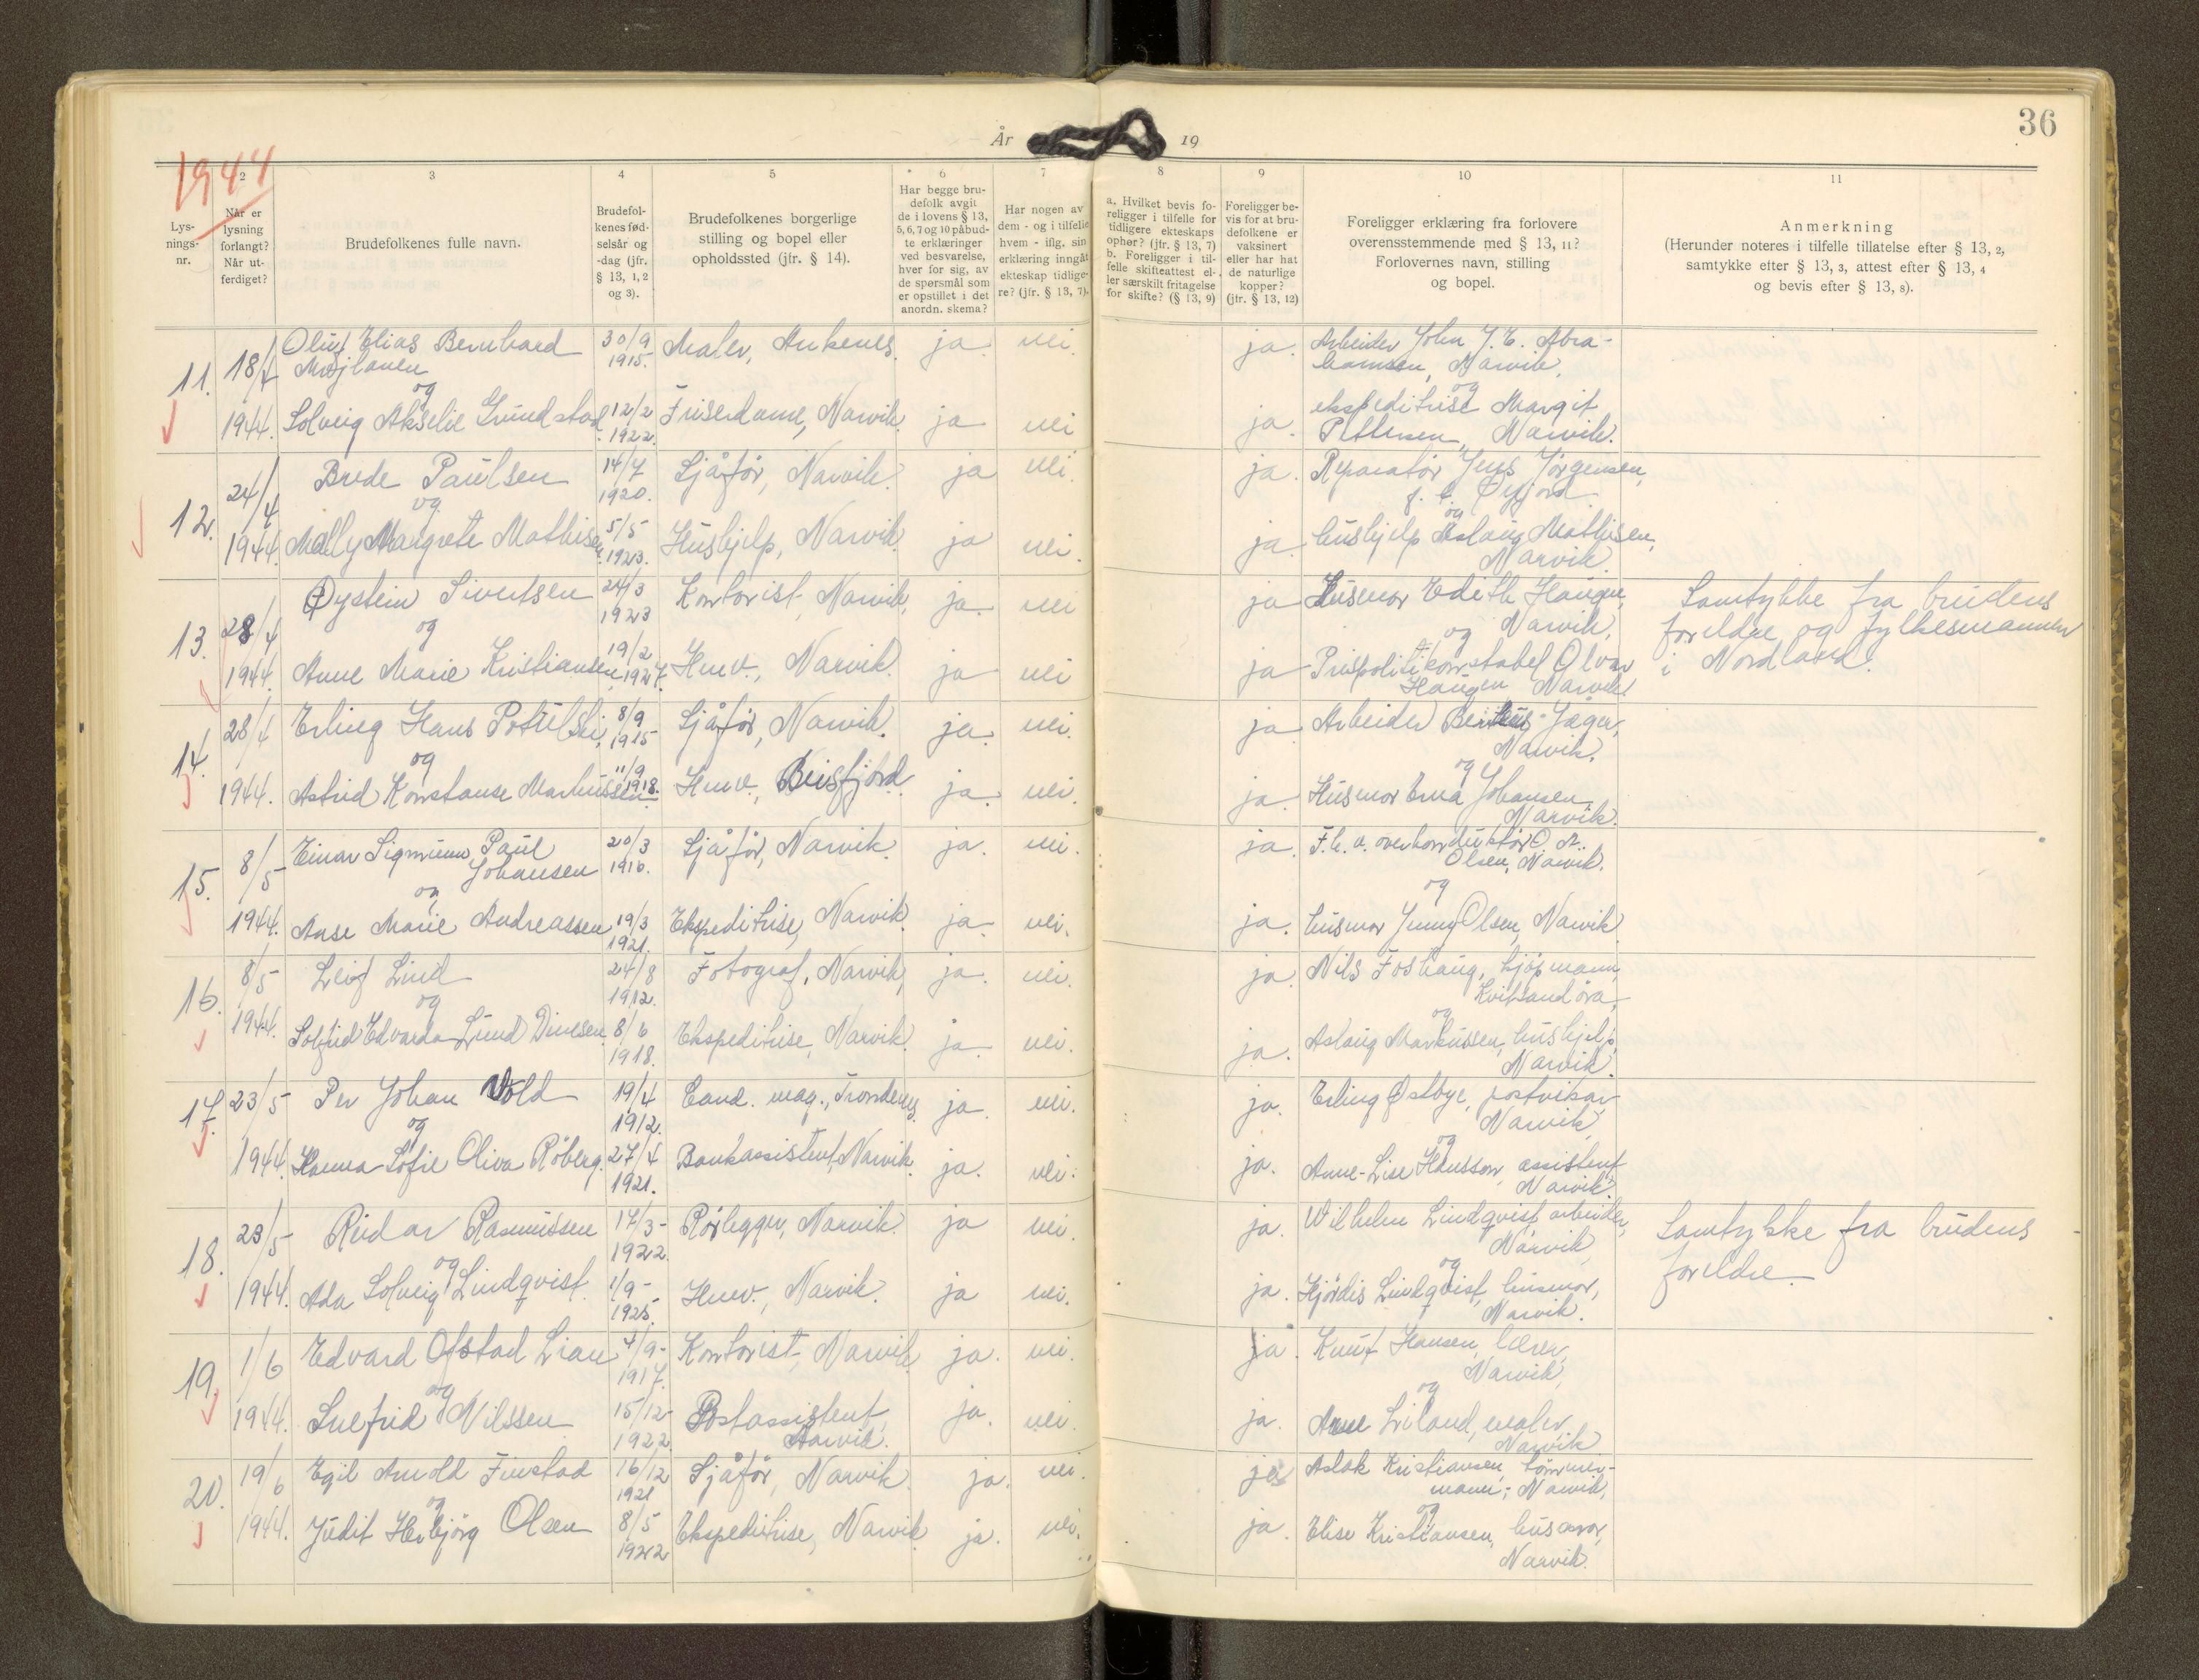 36
År 19
1944
2 3 4 5 6 7 8 9 10 11
Lys-
nings-
nr.
Når er
lysning
forlangt?
Når ut-
ferdiget?
Brudefolkenes fulle navn.
Brudefol-
kenes fød-
selsår og
-dag (jfr.
§ 13, 1, 2
og 3).
Brudefolkenes borgerlige
stilling og bopel eller
opholdssted (jfr. § 14).
Har begge bru-
defolk avgit
de i lovens § 13,
5, 6, 7 og 10 påbud-
te erklæringer
ved besvarelse,
hver for sig, av
de spørsmål som
er opstillet i det
anordn. skema?
Har nogen av
dem - og i tilfelle
hvem - iflg. sin
erklæring inngåt
ekteskap tidlige-
re? (jfr. § 13, 7).
a. Hvilket bevis fo-
religger i tilfelle for
tidligere ekteskaps
ophør? (jfr. § 13, 7)
b. Foreligger i til-
felle skifteattest el-
ler særskilt fritagelse
for skifte? (§ 13, 9)
Foreligger be-
vis for at bru-
defolkene er
vaksinert
eller har hat
de naturlige
kopper?
(jfr. § 13, 12)
Foreligger erklæring fra forlovere
overensstemmende med § 13, 11?
Forlovernes navn, stilling
og bopel.
Anmerkning
(Herunder noteres i tilfelle tillatelse efter § 13, 2,
samtykke efter § 13, 3, attest efter § 13, 4
og bevis efter § 13, 8).
11. 18/4 Oluf Elias Bernhard 30/9 Maler, Ankenes. ja. nei. ja. Arbeider John J. E. Abra-
1915. hamsen, Narvik.
og og
1944. Solveig Akselie Grundstad 12/2 Friserdame, Narvik. ja nei ja. ekspeditrise Margit
1922. Pettersen, Narvik.
12. 24/4 Brede Paulsen 14/7 Sjåfør, Narvik. ja nei. ja. Reparatør Jens Jørgensen,
og 1920. Øyjord
og
1944. Mally Margrete Mathisen 5/5 Hushjelp, Narvik. ja nei. ja. hushjelp Aslaug Mathisen,
1923. Narvik.
13. 28/4 Øystein Sivertsen 24/3 Kontorist, Narvik, ja. nei ja Husmor Edith Haugen, Samtykke fra brudens
og 1923 og Narvik, foreldre og fylkesmannen
1944. Anne Marie Kristiansen 19/2 1927. Hmv., Narvik. ja nei ja Prispolitikonstabel Olvar i Nordland.
Haugen Narvik.
14. 28/4 Erling Hans 8/9 Sjåfør, Narvik. ja. nei. ja Arbeider Jæger,
og 1915 Narvik.
og
1944. Astrid Konstanse Markussen 11/9 1918. Hmv., Beisfjord ja. nei. ja. Husmor Erna Johansen,
Narvik.
15. 8/5 Einar Sigmunn Paul 20/3 Sjåfør, Narvik. ja. nei. ja. F.h.v. overkonduktør O. N.
Johansen 1910. Olsen, Narvik.
og og
1944. Anse Marie Andreassen 19/3 Ekspeditrise, Narvik. ja. nei. ja. husmor Jenny Olsen, Narvik.
1921.
16. 8/5 Leif Lind 24/8 Fotograf, Narvik, ja. nei. ja. Nils Foshaug, kjøpmann,
og 1912. Kvitsandøra,
og
1944. Solfrid Edvarda Lund Dinesen 8/6 Ekspeditrise, Narvik. ja. nei. ja. Aslaug Markussen, hushjelp,
1918. Narvik.
17. 23/5 Per Johan Vold 19/4 Cand. mag., Trondenes. ja. nei. ja. Erling Østbye, postvikar
og 1912. Narvik,
og
1944. Hanna Sofie Oliva Röberg. 27/4 Bankassistent, Narvik. ja. nei. ja. Anne-Lise Hansson, assistent
1921. Narvik.
18. 23/5 Reidar Rasmussen 17/3- Rørlegger, Narvik. ja nei. ja. Wilhelm Lindqvist arbeider, Samtykke fra brudens
og 1922. Narvik foreldre.
og
1944. Ada Solveig Lindqvist. 1/9- Hmv., Narvik. ja nei. ja. Hjördis Lindqvist, husmor,
1925. Narvik.
19. 1/6 Edvard Ofstad Lian 4/9- Kontorist, Narvik ja. nei. ja. Knut Hansen, lærer,
og 1917. Narvik,
og
1944. Snefrid Nilssen 15/12 Postassistent, ja. nei. ja. Liland, maler,
1922. Narvik. Narvik
20. 19/6 Egil Arnold Finstad 16/12 Sjåfør, Narvik. ja. nei. ja Aslak Kristiansen, tømmer-
og 1921 mann, Narvik,
og
1944. Judit Herbjörg Olsen 8/5 Ekspeditrise, Narvik. ja. nei. ja. Elise Kristiansen, husmor,
1922 Narvik.